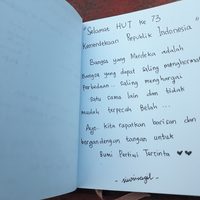 "Selamat HUT ke 73
Kemerdekaan Republik Indonesia"
Bangsa yang Merdeka adalah
Bangsa yang dapat saling menghormati
Perbedaan.. saling menghargai
satu sama lain dan tidak
mudah terpecah Belah ...
Ayo.. kita rapatkan barisan dan
bergandengan tangan untuk
Bumi Pertiwi Tercinta